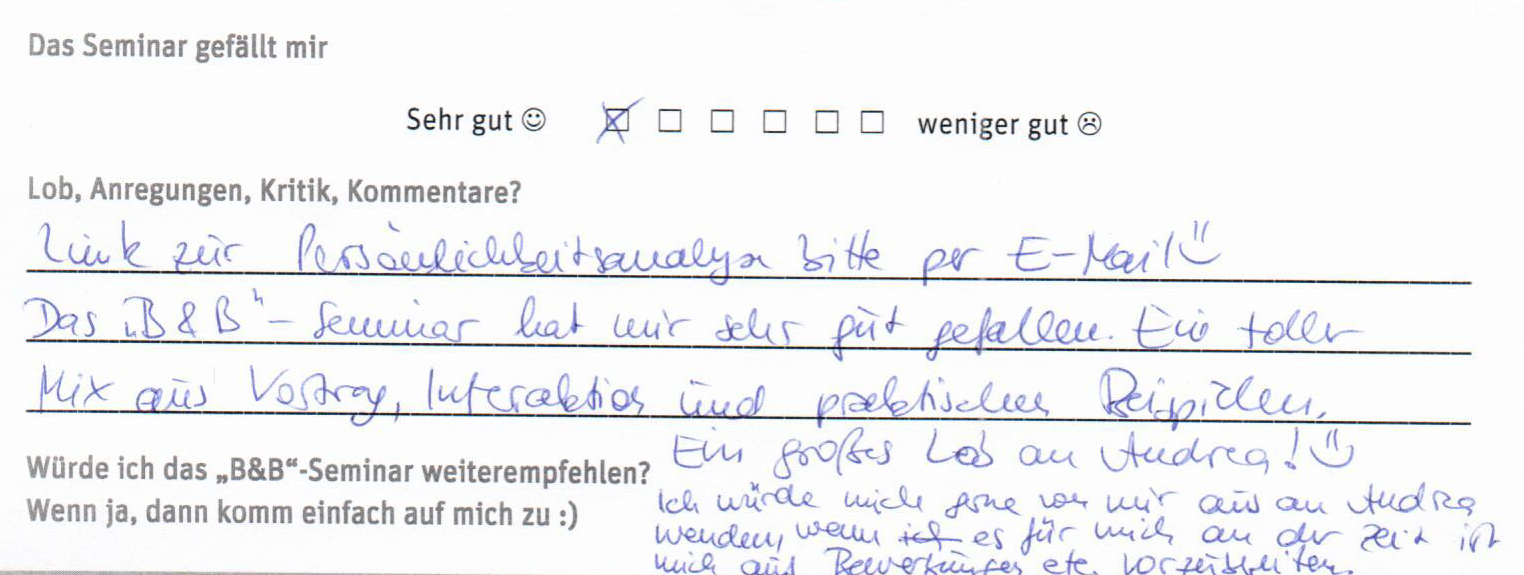 Das Seminar gefällt mir
Sehr gut ☺ ☒ ☐ ☐ ☐ ☐ ☐ weniger gut ☹
Lob, Anregungen, Kritik, Kommentare?
Link zur Persönlichkeitsanalyse bitte per E-Mail ☺
Das „B&B"-Seminar hat mir sehr gut gefallen. Ein toller
Mix aus Vortrag, Interaktion und praktischen Beispielen.
Ein großes Lob an Andrea! ☺
Würde ich das „B&B“-Seminar weiterempfehlen?
Wenn ja, dann komm einfach auf mich zu :)
Ich würde mich gerne von mir aus an Andrea
wenden, wenn ich es für mich an der Zeit ist
mich auf Bewerbungen etc. vorzubereiten.